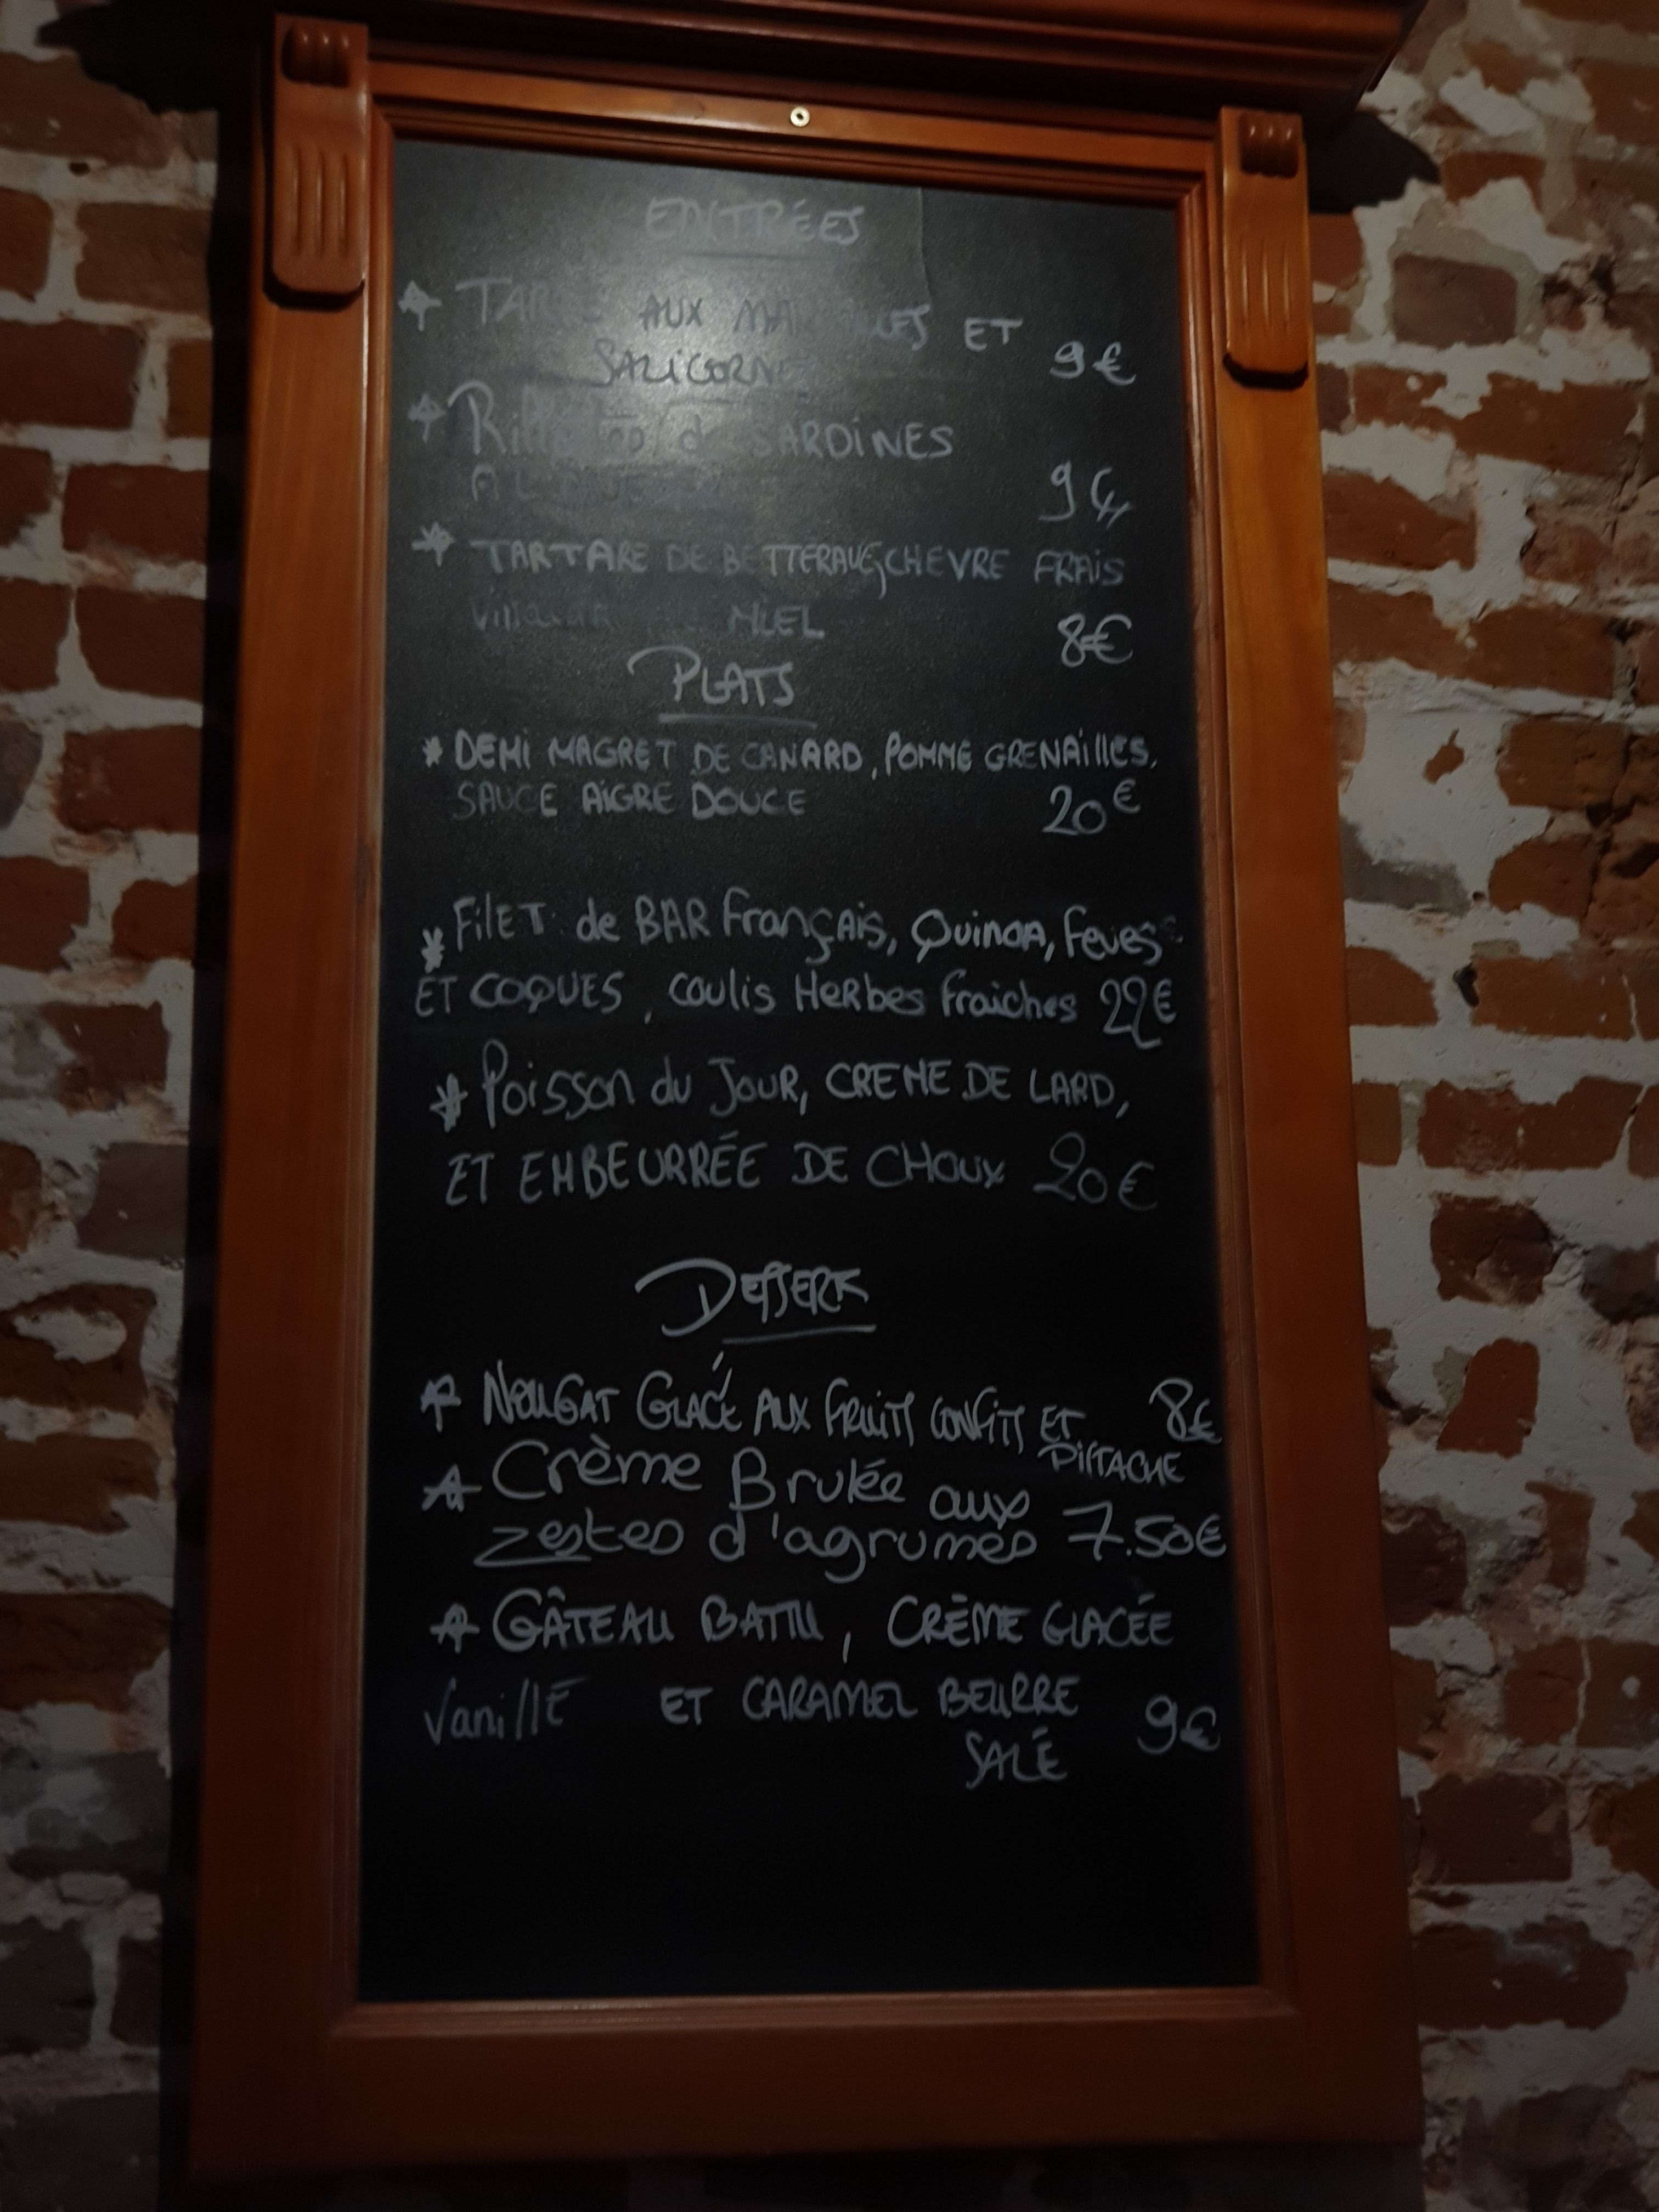 ENTRÉES
* AUX ET
SALICORNE 9€
* de SARDINES
9€
* TARTARE DE BETTERAVE, CHEVRE FRAIS
MIEL 8€
PLATS
* DEMI MAGRET DE CANARD, POMME GRENAILLES,
SAUCE AIGRE DOUCE 20€
* FILET de BAR Français, Quinoa, Feves
ET COQUES, coulis Herbes fraiches 22€
* Poisson du Jour, CREME DE LARD,
ET EMBEURRÉE DE CHOUX 20€
DESSERTS
* NOUGAT GLACÉ AUX FRUITS CONFITS ET 8€
PISTACHE
* Crème Brulée aux
zestes d'agrumes 7.50€
* GÂTEAU BATTU, CRÈME GLACÉE
VanillE ET CARAMEL BEURRE
SALÉ 9€